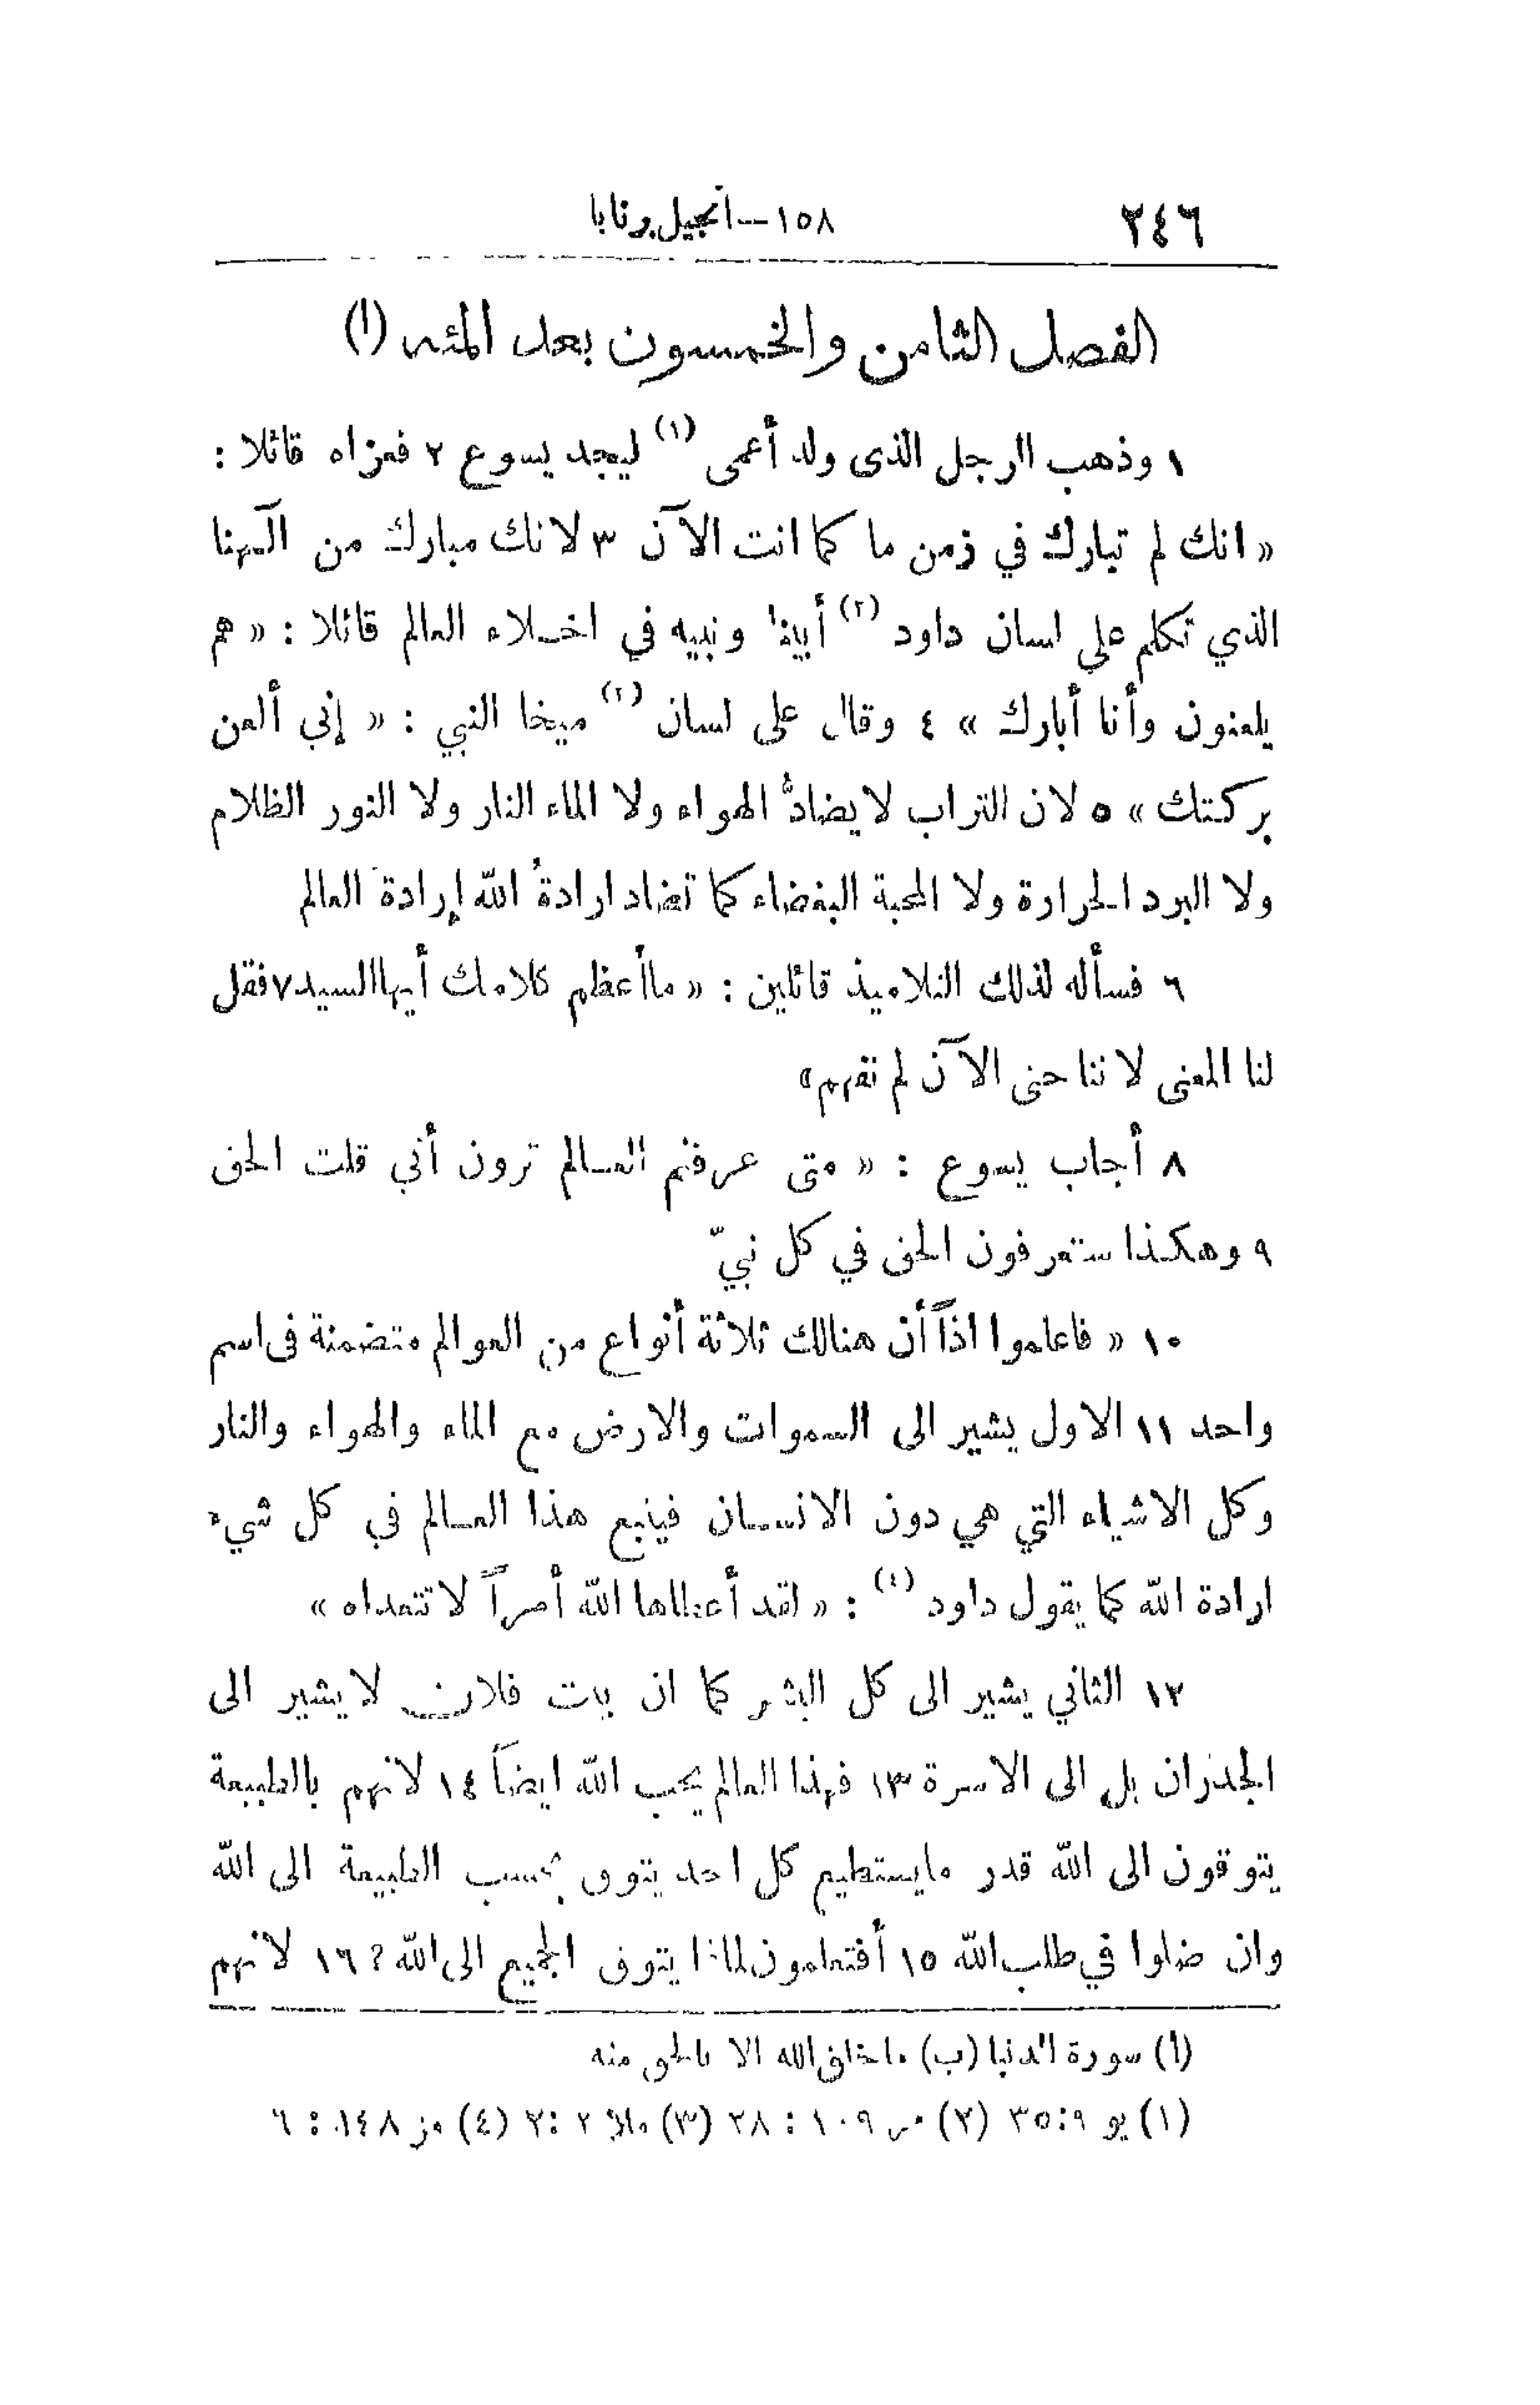 ٢٤٦
١٥٨ — انجيل برنابا
الفصل الثامن والخمسون بعد المئه (ا)
١ وذهب الرجل الذى ولد أعمى (١) ليجد يسوع ٢ فعزاه قائلا :
« انك لم تبارك في زمن ما كما انت الآن ٣ لانك مبارك من آلهنا
الذي تكلم على لسان داود (٢) أبينا ونبيه في اخلاء العالم قائلا : « هم
يلعنون وأنا أبارك » ٤ وقال على لسان (٢) ميخا النبي : « إني ألعن
بركتك » ٥ لان التراب لا يضادُّ الهواء ولا الماء النار ولا النور الظلام
ولا البرد الحرارة ولا المحبة البغضاء كما تضاد ارادةُ الله إرادةَ العالم
٦ فسأله لذلك التلاميذ قائلين : « ما أعظم كلامك أيها السيد ٧ فقل
لنا المعنى لاننا حتى الآن لم نفهم »
٨ أجاب يسوع : « متى عرفتم العالم ترون أني قلت الحق
٩ وهكذا ستعرفون الحق في كل نبيّ
١٠ « فاعلموا اذاً أن هنالك ثلاثة أنواع من العوالم متضمنة فى اسم
واحد ١١ الاول يشير الى السموات والارض مع الماء والهواء والنار
وكل الاشياء التي هي دون الانسان فيتبع هذا العالم في كل شيء
ارادة الله كما يقول داود (٤) : « لقد أعطاها الله أمراً لا تتعداه »
١٢ الثاني يشير الى كل البشر كما ان بيت فلان لا يشير الى
الجدران بل الى الاسرة ١٣ فهذا العالم يحب الله ايضاً ١٤ لانهم بالطبيعة
يتوقون الى الله قدر ما يستطيع كل احد يتوق بحسب الطبيعة الى الله
وان ضلوا في طلب الله ١٥ أفتعلمون لماذا يتوق الجميع الى الله ؟ ١٦ لانهم
(ا) سورة الدنيا (ب) ما خلق الله الا بالحق منه
(١) يو ٩ : ٣٥ (٢) مز ١٠٩ : ٢٨ (٣) ملا ٢ : ٢ (٤) مز ١٤٨ : ٦